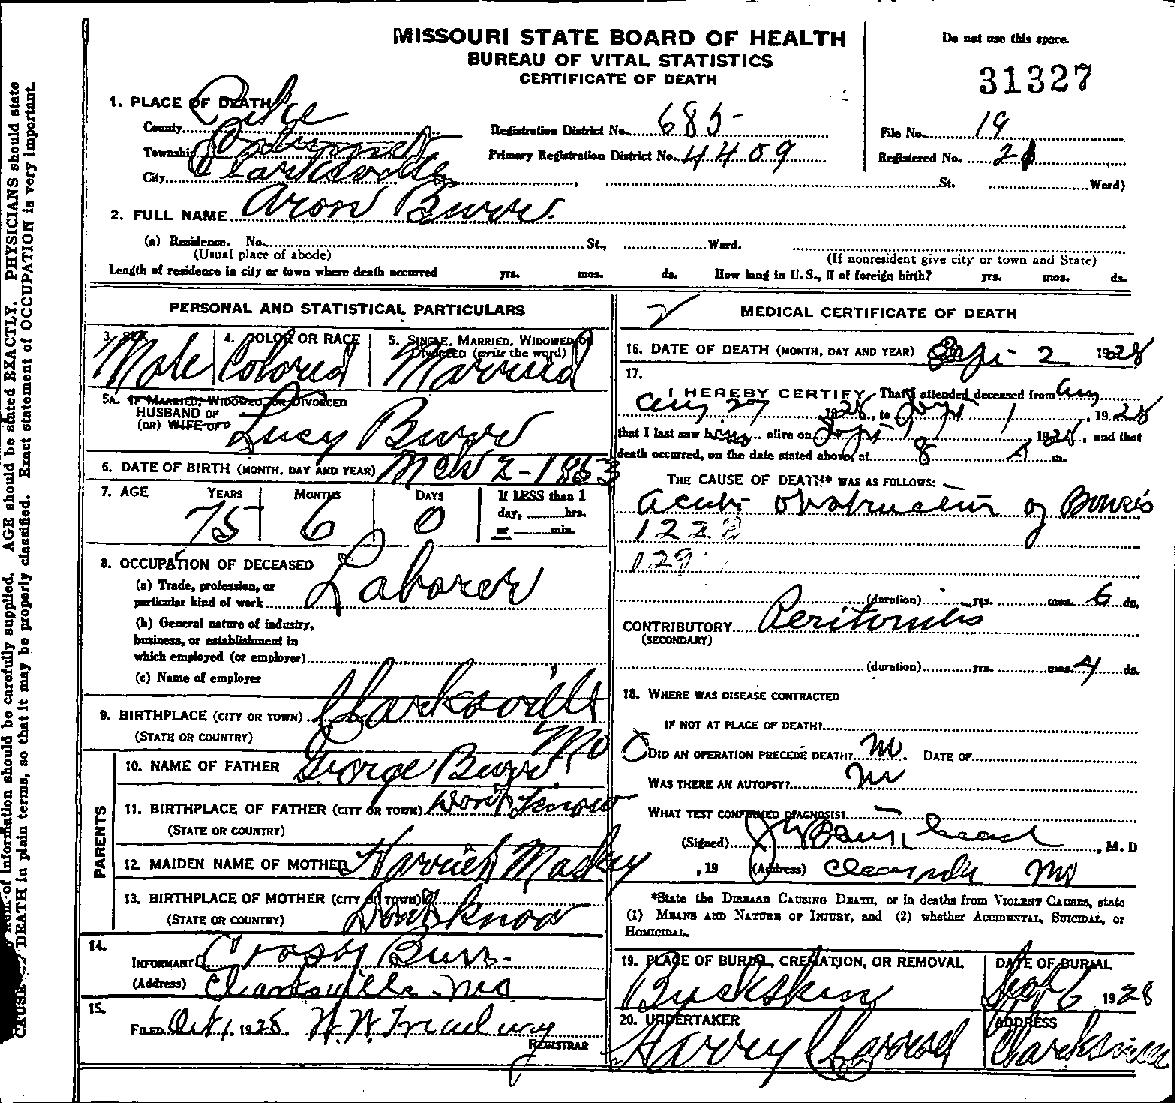 MISSOURI STATE BOARD OF HEALTH
BUREAU OF VITAL STATISTICS
CERTIFICATE OF DEATH
Do not use this space.
31327
1. PLACE OF DEATH
County Pike
Township Calumet
City Clarksville
Registration District No. 685
Primary Registration District No. 4409
File No. 19
Registered No. 21
St. Ward)
2. FULL NAME Aron Burr.
(a) Residence. No. St., Ward.
(Usual place of abode) (If nonresident give city or town and State)
Length of residence in city or town where death occurred yrs. mos. ds. How long in U.S., if of foreign birth? yrs. mos. ds.
PERSONAL AND STATISTICAL PARTICULARS
3. SEX Male
4. COLOR OR RACE Colored
5. SINGLE, MARRIED, WIDOWED OR DIVORCED (write the word) Married
5A. IF MARRIED, WIDOWED OR DIVORCED
HUSBAND OF
(OR) WIFE OF Lucy Burr
6. DATE OF BIRTH (MONTH, DAY AND YEAR) Mch 2-1853
7. AGE YEARS MONTHS DAYS If LESS than 1
day, hrs.
or min.
75 6 0
8. OCCUPATION OF DECEASED
(a) Trade, profession, or
particular kind of work Laborer
(b) General nature of industry,
business, or establishment in
which employed (or employer)
(c) Name of employer
9. BIRTHPLACE (CITY OR TOWN) Clarksville
(STATE OR COUNTRY) Mo
PARENTS
10. NAME OF FATHER George Burr
11. BIRTHPLACE OF FATHER (CITY OR TOWN) Dont Know
(STATE OR COUNTRY)
12. MAIDEN NAME OF MOTHER Harriet
13. BIRTHPLACE OF MOTHER (CITY OR TOWN)
(STATE OR COUNTRY) Dont Know
14.
INFORMANT Crosby Burr
(Address) Clarksville Mo
15.
FILED Oct 1, 1928
REGISTRAR
MEDICAL CERTIFICATE OF DEATH
16. DATE OF DEATH (MONTH, DAY AND YEAR) Sept 2 1928
17.
I HEREBY CERTIFY, That I attended deceased from Aug
Aug 27 1928, to Sept 1, 1928
that I last saw him alive on Sept 1, 1928, and that
death occurred, on the date stated above, at 8 A m.
THE CAUSE OF DEATH* WAS AS FOLLOWS:
Acute Obstruction of Bowels
122
(duration) yrs. mos. 6 ds.
CONTRIBUTORY Peritonitis
(SECONDARY)
(duration) yrs. mos. 4 ds.
18. WHERE WAS DISEASE CONTRACTED
IF NOT AT PLACE OF DEATH?
DID AN OPERATION PRECEDE DEATH? No DATE OF
WAS THERE AN AUTOPSY? No
WHAT TEST CONFIRMED DIAGNOSIS?
(Signed) , M. D
, 19 (Address) Mo
*State the DISEASE CAUSING DEATH, or in deaths from VIOLENT CAUSES, state
(1) MEANS AND NATURE OF INJURY, and (2) whether ACCIDENTAL, SUICIDAL, or
HOMICIDAL.
19. PLACE OF BURIAL, CREMATION, OR REMOVAL Buckskin
DATE OF BURIAL 1928
20. UNDERTAKER Harry
ADDRESS Clarksville
of information should be carefully supplied. AGE should be stated EXACTLY. PHYSICIANS should state
CAUSE OF DEATH in plain terms, so that it may be properly classified. Exact statement of OCCUPATION is very important.